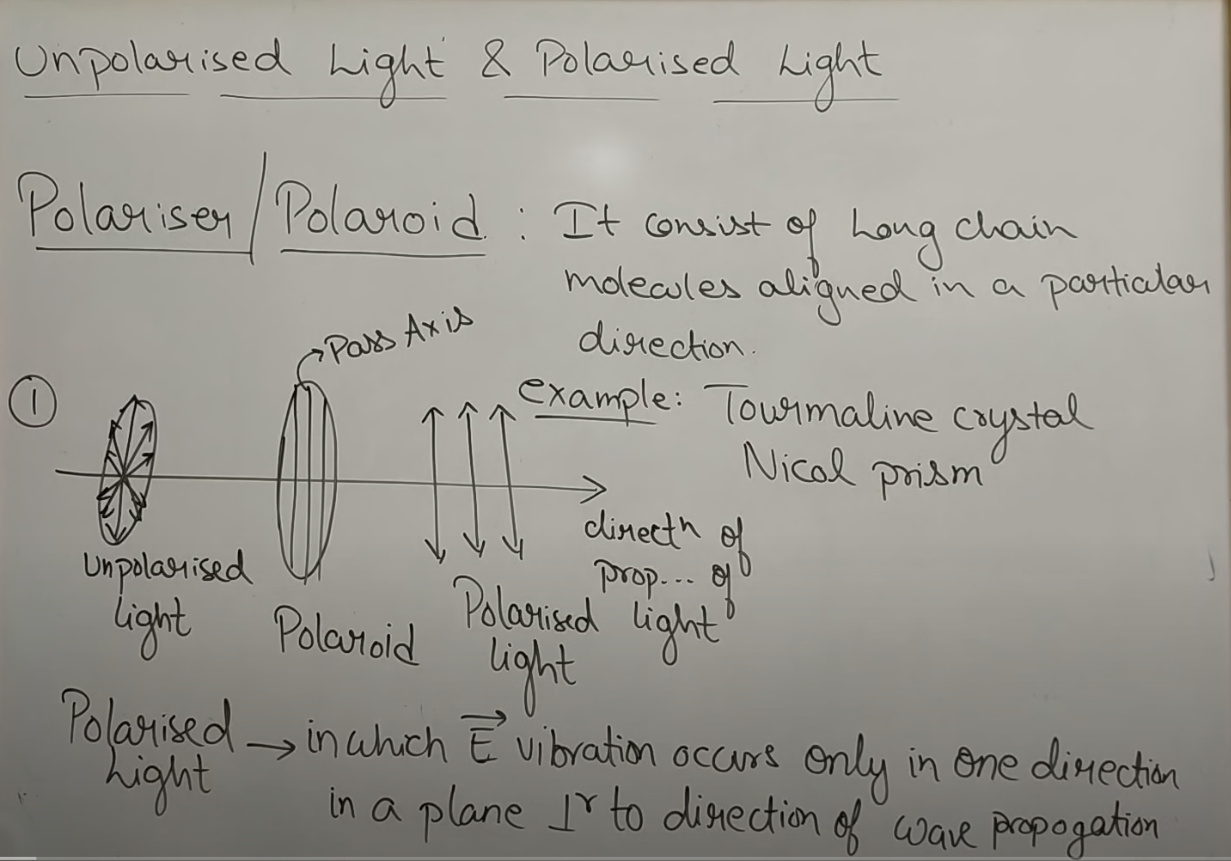 Unpolarised Light & Polarised Light
Polariser/Polaroid : It consist of Long chain
molecules aligned in a particular
direction.
Pass Axis
①
example: Tourmaline crystal
Nicol prism
directn of
prop... of
light
Unpolarised
light
Polaroid
Polarised
light
Polarised
Light → in which E⃗ vibration occurs only in one direction
in a plane ⊥r to direction of wave propogation